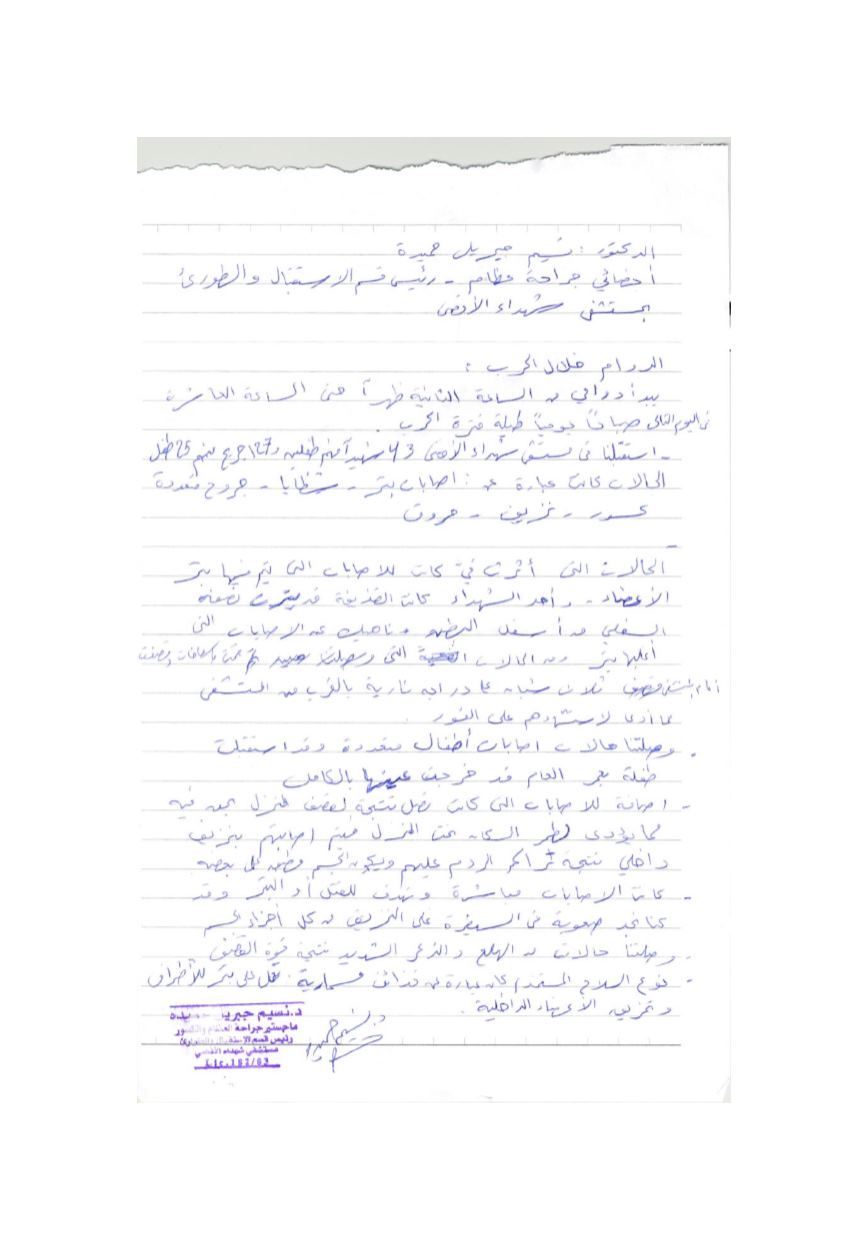 الدكتور : نسيم جبريل حميدة
أخصائي جراحة عظام - رئيس قسم الاستقبال والطورئ
بمستشفى شهداء الأقصى
الدوام خلال الحرب :
يبدأ دوامي من الساعة الثانية ظهراً حتى الساعة العاشرة
في اليوم التالي صباحاً يومياً طيلة فترة الحرب .
- استقبلنا في مستشفى شهداء الأقصى 43 شهيداً منهم طفلين و 127 جريح منهم 25 طفل
الحالات كانت عبارة عن : اصابات بتر - شظايا - جروح متعددة
كسور - نزيف - حروق
الحالات التي أثرت فيّ كانت للاصابات التي تم فيها بتر
الأعضاء - وأحد الشهداء كانت القذيفة قد بترت نصفه
السفلي من أسفل البطن وناهيك عن الاصابات التي
أغلبها بتر ومن الحالات التي وصلتنا
أمام المستشفى ثلاث شبان على دراجه نارية بالقرب من المستشفى
مما أدى لاستشهادهم على الفور .
. وصلتنا حالات اصابات أطفال متعددة وقد استقبلت
طفلة بعمر العام قد خرجت عينها بالكامل
- اضافة للاصابات التي كانت تصل نتيجة لقصف المنزل بمن فيه
مما يؤدي لطمر السكان تحت المنزل فيتم اصابتهم بنزيف
داخلي نتيجة تراكم الردم عليهم ويكون الجسم على بعضه
- كانت الاصابات مباشرة وتهدف للقتل أو البتر وقد
كنا نجد صعوبة في السيطرة على النزيف من كل أجزاء الجسم
- وصلتنا حالات من الهلع والذعر الشديد نتيجة قوة القصف
- نوع السلاح المستخدم كان عبارة عن قذائف مسمارية . تعمل على بتر للأطراف
وتمزيق الأعضاء الداخلية .
د. نسيم حميدة
د. نسيم جبريل حميده
ماجستير جراحة العظام والكسور
رئيس قسم الاستقبال والطوارئ
مستشفى شهداء الاقصى